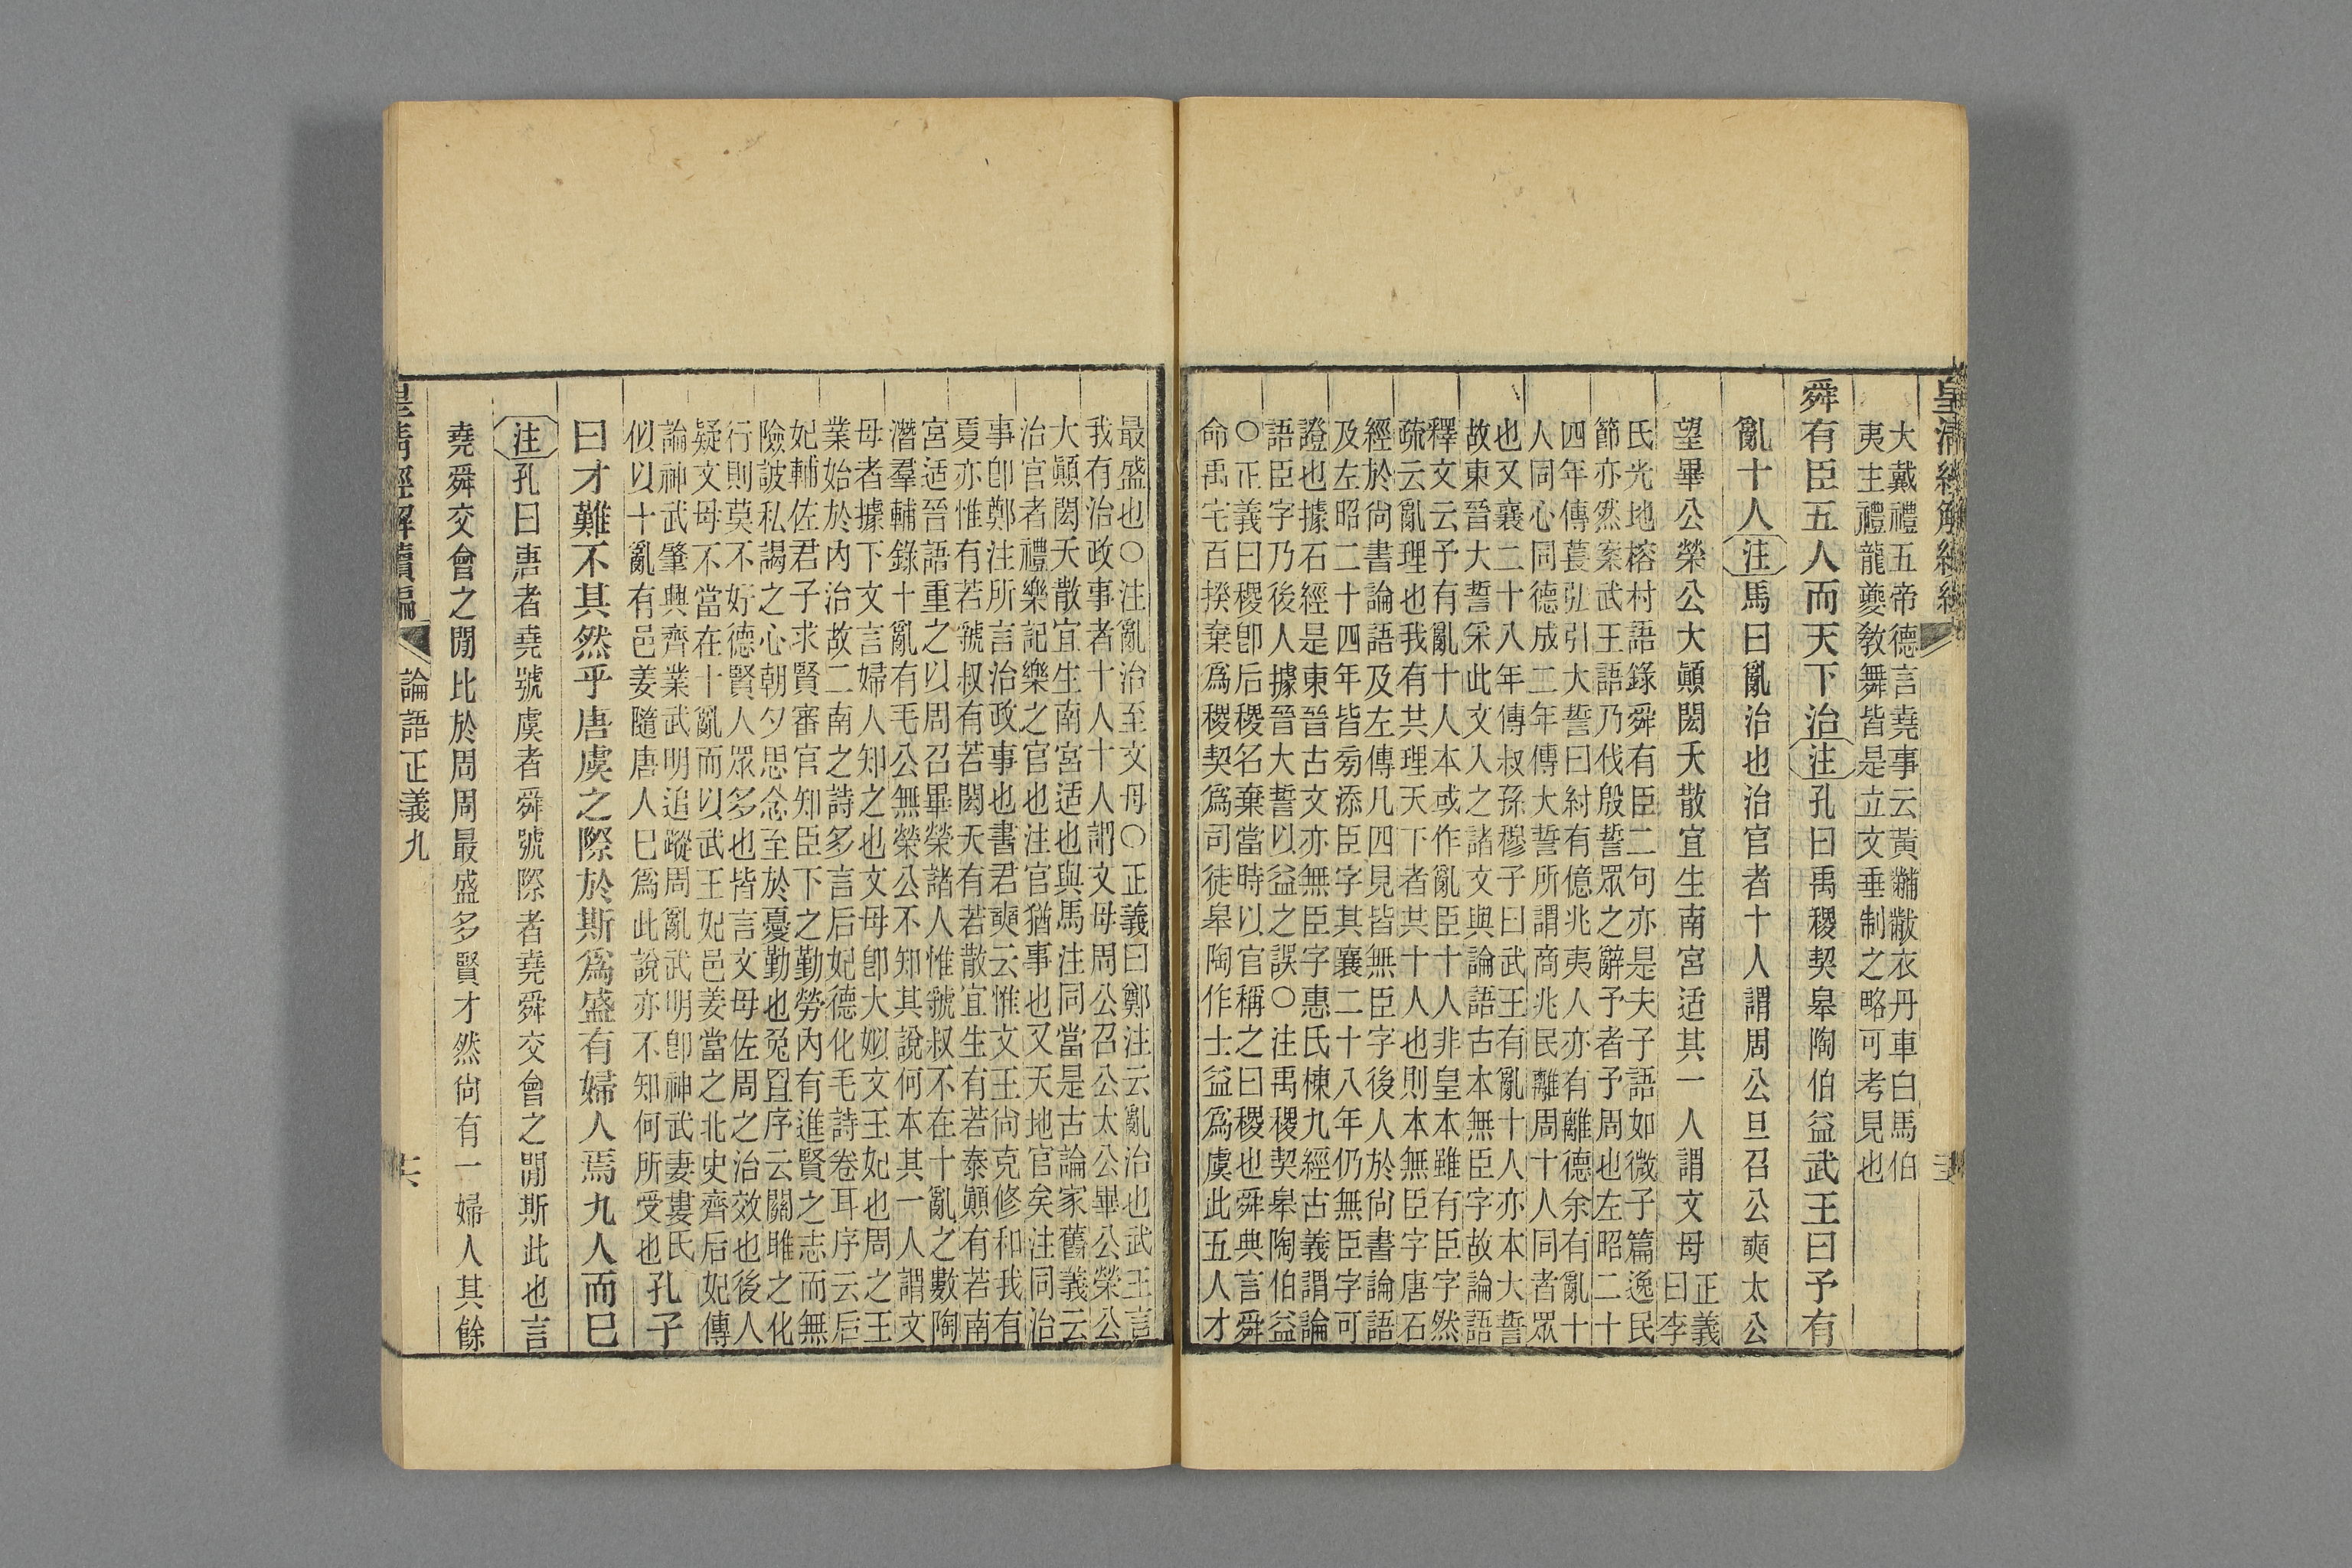 大戴禮五帝德言堯事云黃黼黻衣丹車白馬伯
夷主禮龍夔敎舞皆是立文垂制之略可考見也
舜有臣五人而天下治注孔曰禹稷契皋陶伯益武王曰予有
亂十人注馬曰亂治也治官者十人謂周公旦召公奭太公
望畢公榮公大顚閎夭散宜生南宮适其一人謂文母正義
曰李
氏光地榕村語錄舜有臣二句亦是夫子語如微子篇逸民
節亦然案武王語乃伐殷誓眾之辭予者予周也左昭二十
四年傳萇弘引大誓曰紂有億兆夷人亦有離德余有亂十
人同心同德成二年傳大誓所謂商兆民離周十人同者眾
也又襄二十八年傳叔孫穆子曰武王有亂十人亦本大誓
故東晉大誓采此文入之諸文與論語古本無臣字故論語
釋文云予有亂十人本或作亂臣十人非皇本雖有臣字然
疏云亂理也我有共理天下者共十人也則本無臣字唐石
經於尙書論語及左傳凡四見皆無臣字後人於尙書論語
及左昭二十四年皆旁添臣字其襄二十八年仍無臣字可
證也據石經是東晉古文亦無臣字惠氏棟九經古義謂論
語臣字乃後人據晉大誓以益之誤○注禹稷契皋陶伯益
○正義曰稷卽后稷名棄當時以官稱之曰稷也舜典言舜
命禹宅百揆棄爲稷契爲司徒皋陶作士益爲虞此五人才
最盛也○注亂治至文母○正義曰鄭注云亂治也武王言
我有治政事者十人十人謂文母周公召公太公畢公榮公
大顚閎夭散宜生南宮适也與馬注同當是古論家舊義云
治官者禮樂記樂之官也注官猶事也又天地官矣注同治
事卽鄭注所言治政事也書君奭云惟文王尙克修和我有
夏亦惟有若虢叔有若閎夭有若散宜生有若泰顚有若南
宮适晉語重之以周召畢榮諸人惟虢叔不在十亂之數陶
潛羣輔錄十亂有毛公無榮公不知其說何本其一人謂文
母者據下文言婦人知之也文母卽大姒文王妃也周之王
業始於內治故二南之詩多言后妃德化毛詩卷耳序云后
妃輔佐君子求賢審官知臣下之勤勞內有進賢之志而無
險詖私謁之心朝夕思念至於憂勤也兔罝序云關雎之化
行則莫不好德賢人眾多也皆言文母佐周之治效也後人
疑文母不當在十亂而以武王妃邑姜當之北史齊后妃傳
論神武肇興齊業武明追蹤周亂武明卽神武妻婁氏
似以十亂有邑姜隨唐人巳爲此說亦不知何所受也孔子
曰才難不其然乎唐虞之際於斯爲盛有婦人焉九人而巳
注孔曰唐者堯號虞者舜號際者堯舜交會之閒斯此也言
堯舜交會之閒比於周周最盛多賢才然尙有一婦人其餘
皇清經解續編 論語正義九